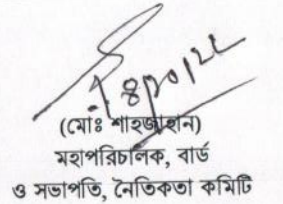 (মোঃ শাহজাহান)
মহাপরিচালক, বার্ড
ও সভাপতি, নৈতিকতা কমিটি